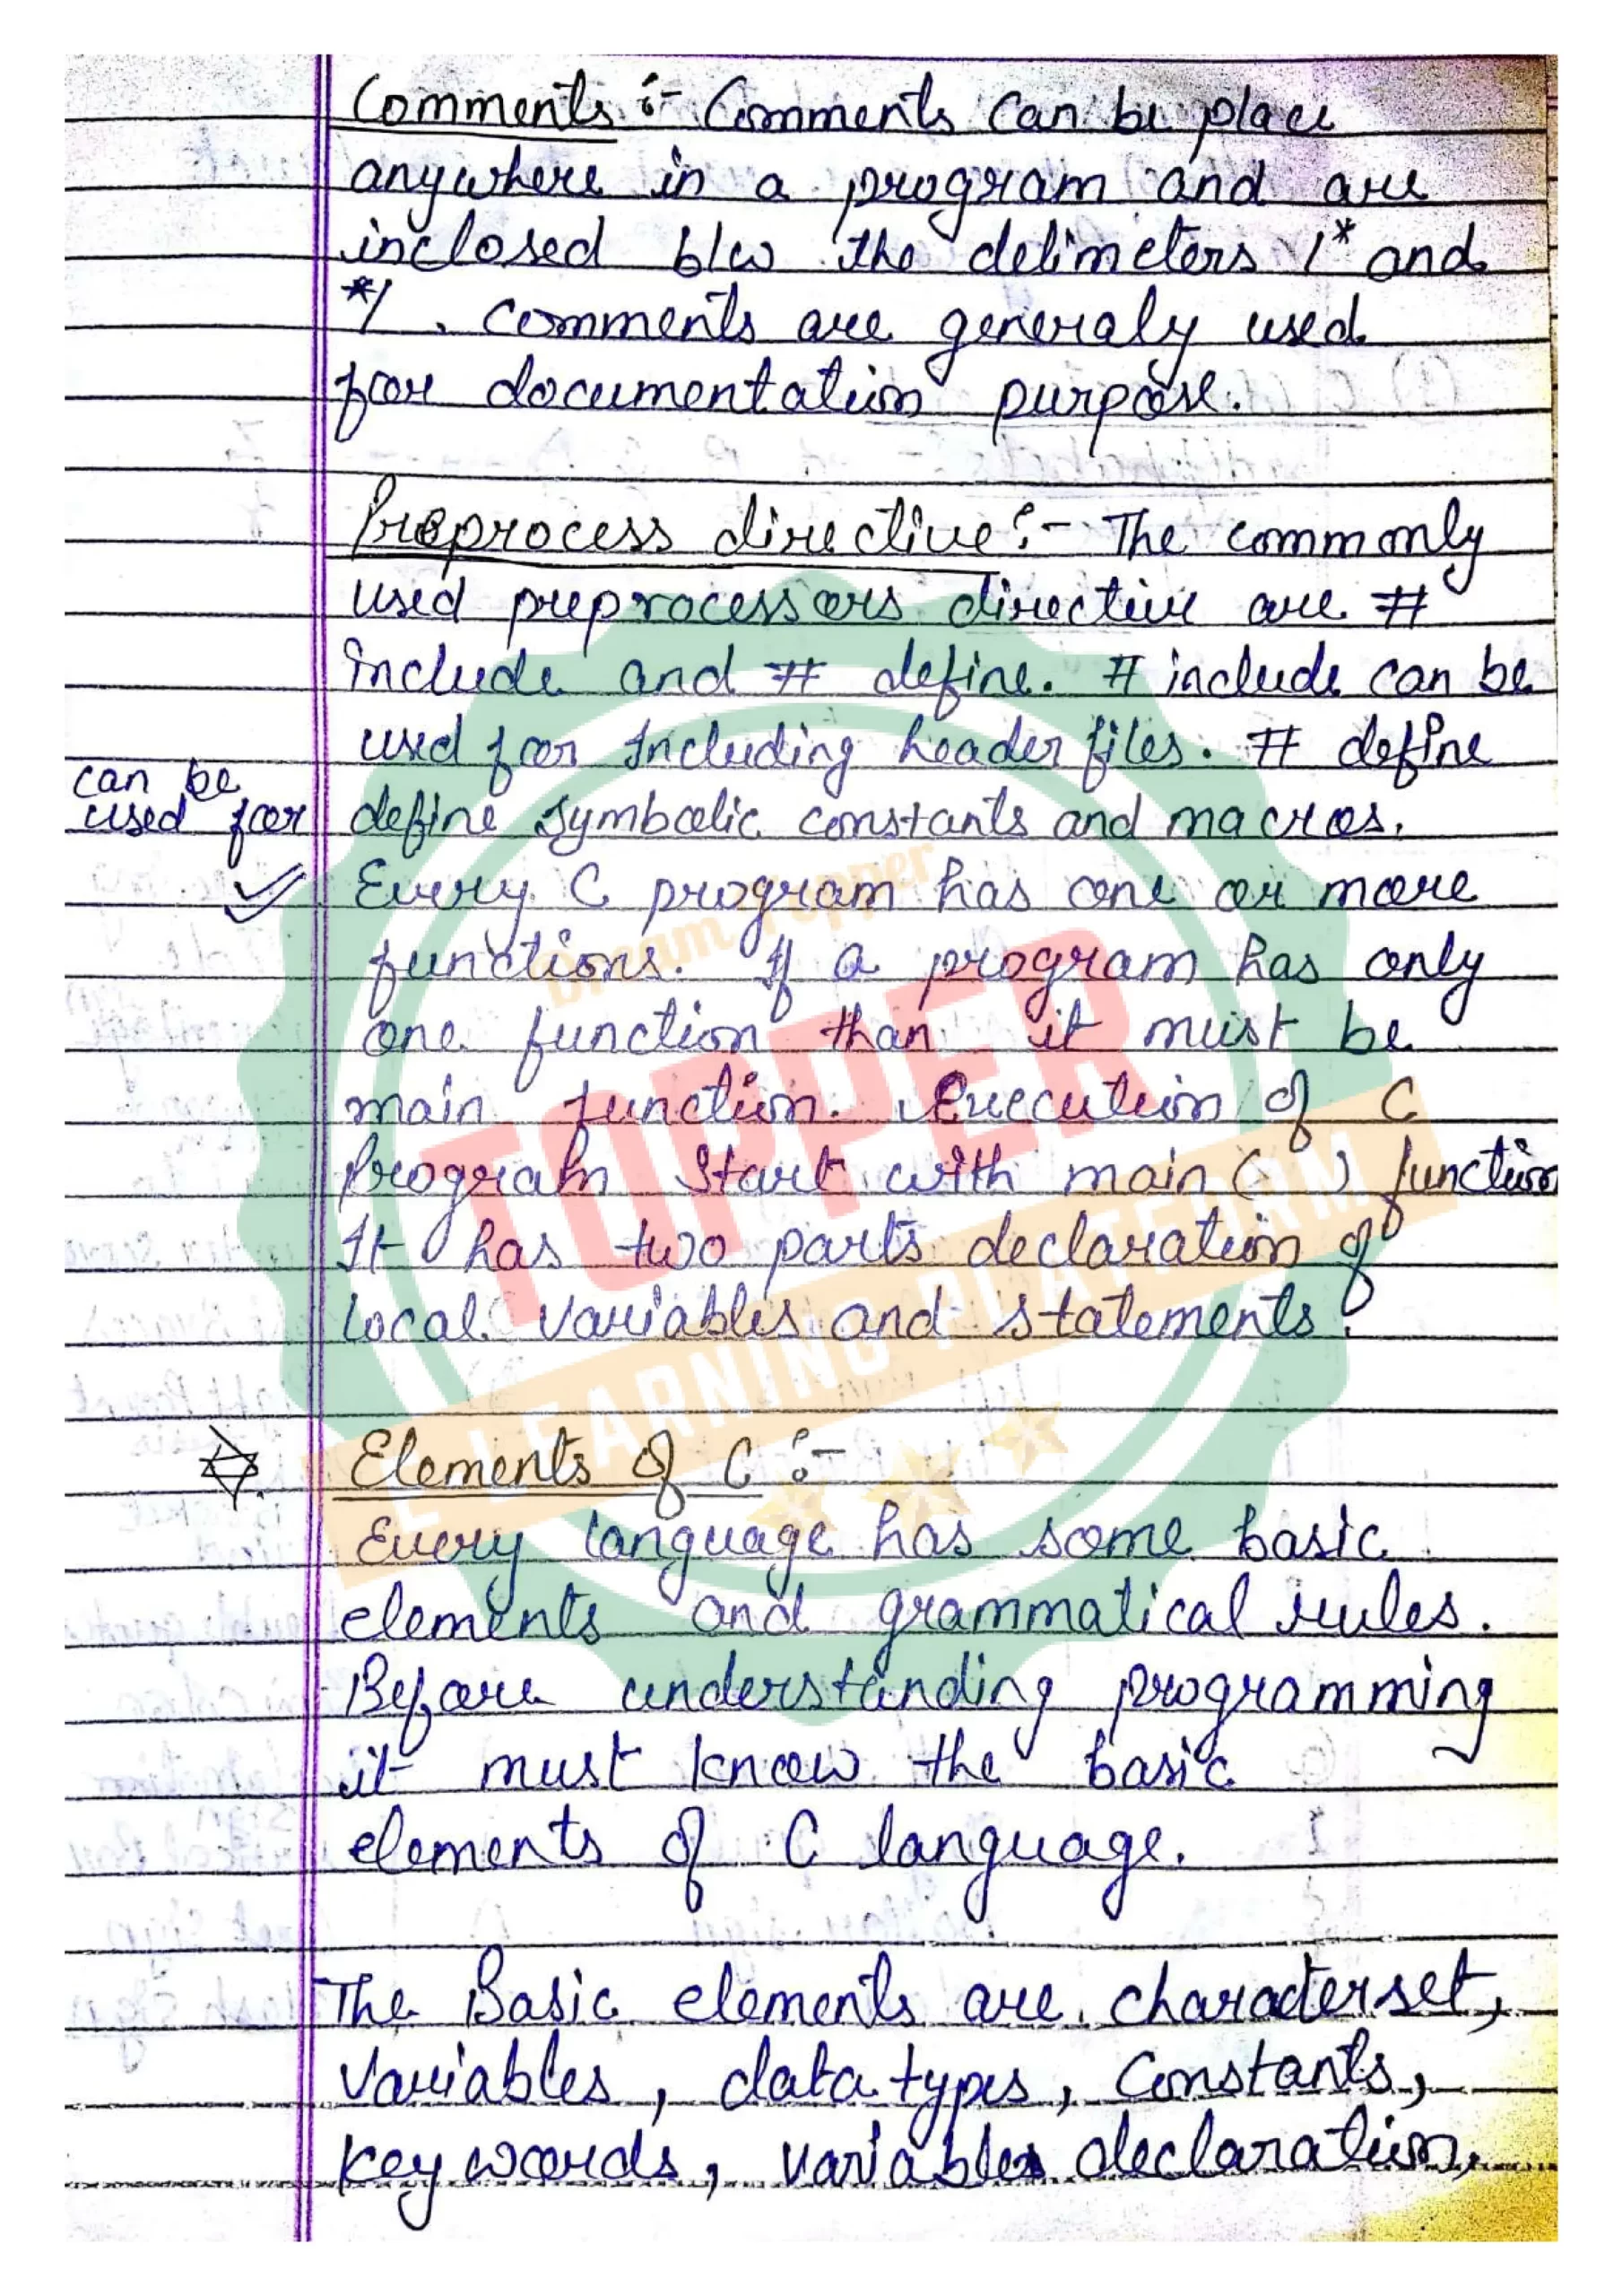 Comments :- Comments can be place
anywhere in a program and are
inclosed b/w the delimeters /* and
*/ . comments are generaly used
for documentation purpose.
Preprocess directive :- The commonly
used preprocessors directive are #
include and # define. # include can be
used for Including header files. # define
can be
used for
define symbolic constants and macros.
Every C program has one or more
functions. If a program has only
one function than it must be
main function. Execution of C
Program Start with main ( ) function
It has two parts declaration of
local variables and statements.
Elements of C :-
Every language has some basic
elements and grammatical rules.
Before understanding programming
it must know the basic
elements of C language.
The Basic elements are characterset,
Variables, data types, Constants,
key words, variables declaration,
Dream Topper
TOPPER
E LEARNING PLATFORM